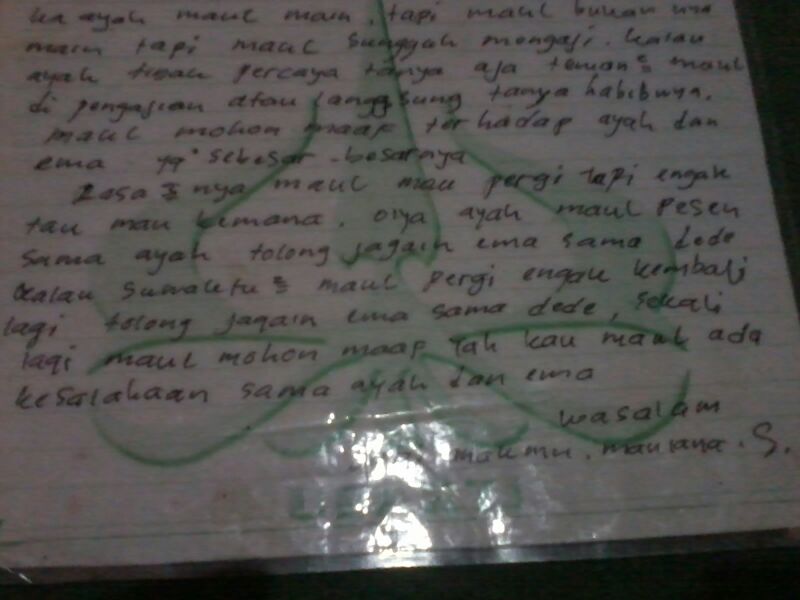 ka ayah maul main, tapi maul bukan nya
main tapi maul sungguh mengaji. kalau
ayah tidak percaya tanya aja teman² maul
di pengajian atau langgsung tanya habibnya.
maul mohon maap terhadap ayah dan
ema yg sebesar-besarnya
Rasa²nya maul mau pergi tapi engak
tau mau kemana. oiya ayah maul pesen
sama ayah tolong jagain ema sama dede
kalau suwaktu² maul pergi engak kembali
lagi tolong jagain ema sama dede, sekali
lagi maul mohon maap yah kau maul ada
kesalahaan sama ayah dan ema
wasalam
makmu. maulana. S.